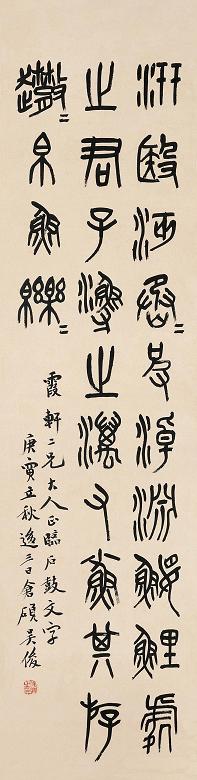 汧殹沔丞〻皮淖淵鰋鯉處
之君子漁之漓又小魚其斿
帛魚皪〻
霞軒二兄大人正臨石鼓文字
庚寅立秋後三日倉碩吳俊